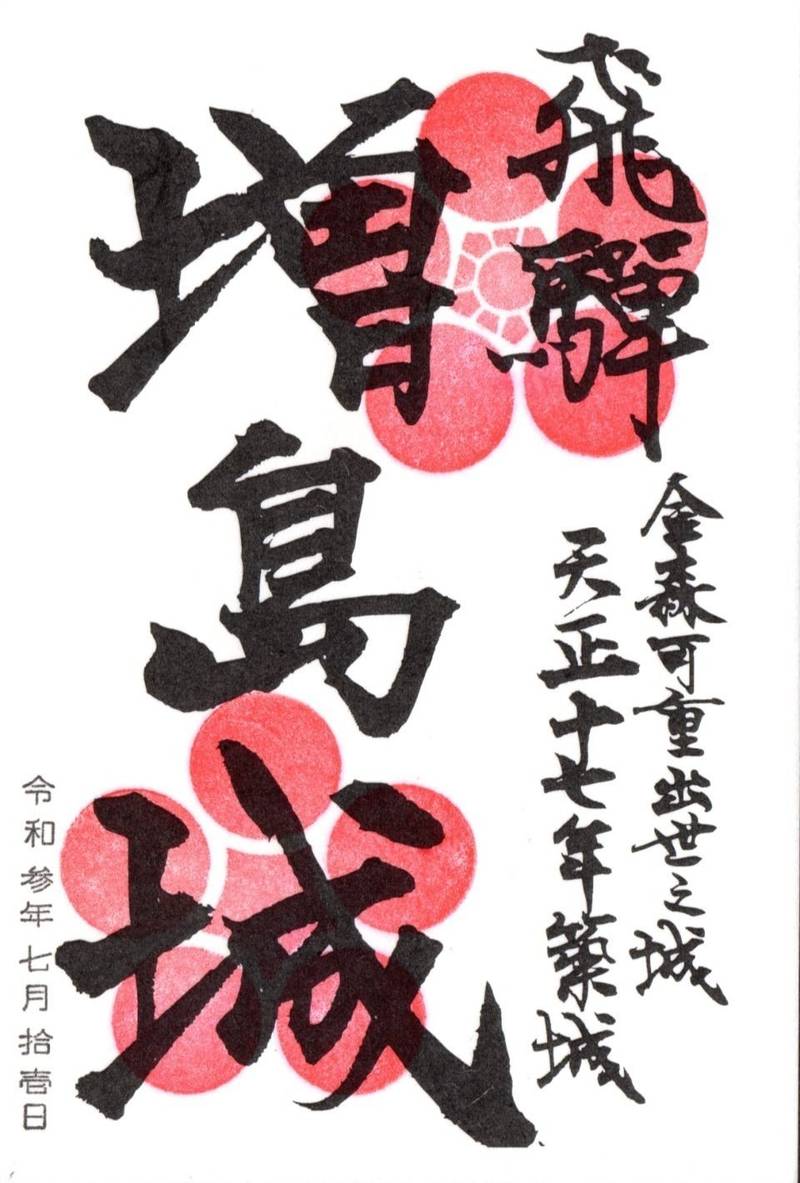 飛驒
金森可重出世之城
天正十七年築城
増島城
令和参年七月拾壱日